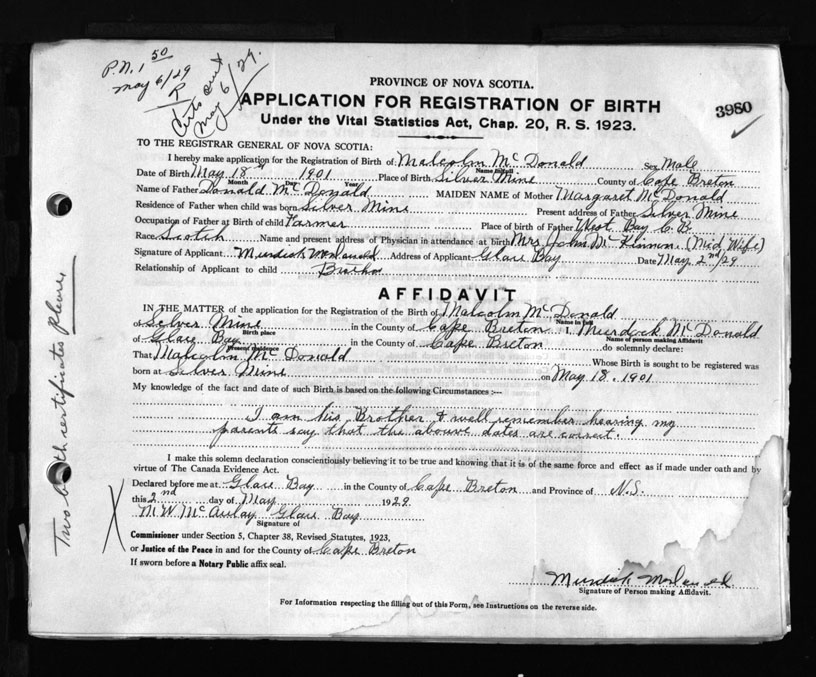 P.N. 1 50
May 6/29
R
Certs sent
May 6/29.
PROVINCE OF NOVA SCOTIA.
APPLICATION FOR REGISTRATION OF BIRTH
3980
Under the Vital Statistics Act, Chap. 20, R. S. 1923.
TO THE REGISTRAR GENERAL OF NOVA SCOTIA:
I hereby make application for the Registration of Birth of Malcolm McDonald Sex Male
Name in full
Date of Birth May 18th 1901 Place of Birth Silver Mine County of Cape Breton
Month Day Year
Name of Father Donald McDonald MAIDEN NAME of Mother Margaret McDonald
Residence of Father when child was born Silver Mine Present address of Father Silver Mine
Occupation of Father at Birth of child Farmer Place of birth of Father West Bay C.B.
Race Scotch Name and present address of Physician in attendance at birth Mrs John McKinnon. (Mid Wife)
Signature of Applicant Murdock McDonald Address of Applicant Glace Bay Date May 2nd/29
Relationship of Applicant to child Brother
AFFIDAVIT
IN THE MATTER of the application for the Registration of the Birth of Malcolm McDonald
Name in full
of Silver Mine in the County of Cape Breton I, Murdock McDonald
Birth place Name of person making Affidavit
of Glace Bay in the County of Cape Breton do solemnly declare:
Present Residence
That Malcolm McDonald Whose Birth is sought to be registered was
born at Silver Mine on May 18. 1901
My knowledge of the fact and date of such Birth is based on the following Circumstances :--
I am his Brother & well remember hearing my
parents say that the abouve dates are correct.
I make this solemn declaration conscientiously believing it to be true and knowing that it is of the same force and effect as if made under oath and by
virtue of The Canada Evidence Act.
Declared before me at Glace Bay in the County of Cape Breton and Province of N.S.
this 2nd day of May 1929
M.W. McAulay Glace Bay
Signature of
Commissioner under Section 5, Chapter 38, Revised Statutes, 1923,
or Justice of the Peace in and for the County of Cape Breton
If sworn before a Notary Public affix seal.
Murdock McDonald
Signature of Person making Affidavit.
For Information respecting the filling out of this Form, see Instructions on the reverse side.
Two birth certificates please